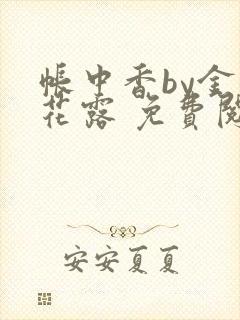 帳中香by金
花露 免費閱
安安夏夏